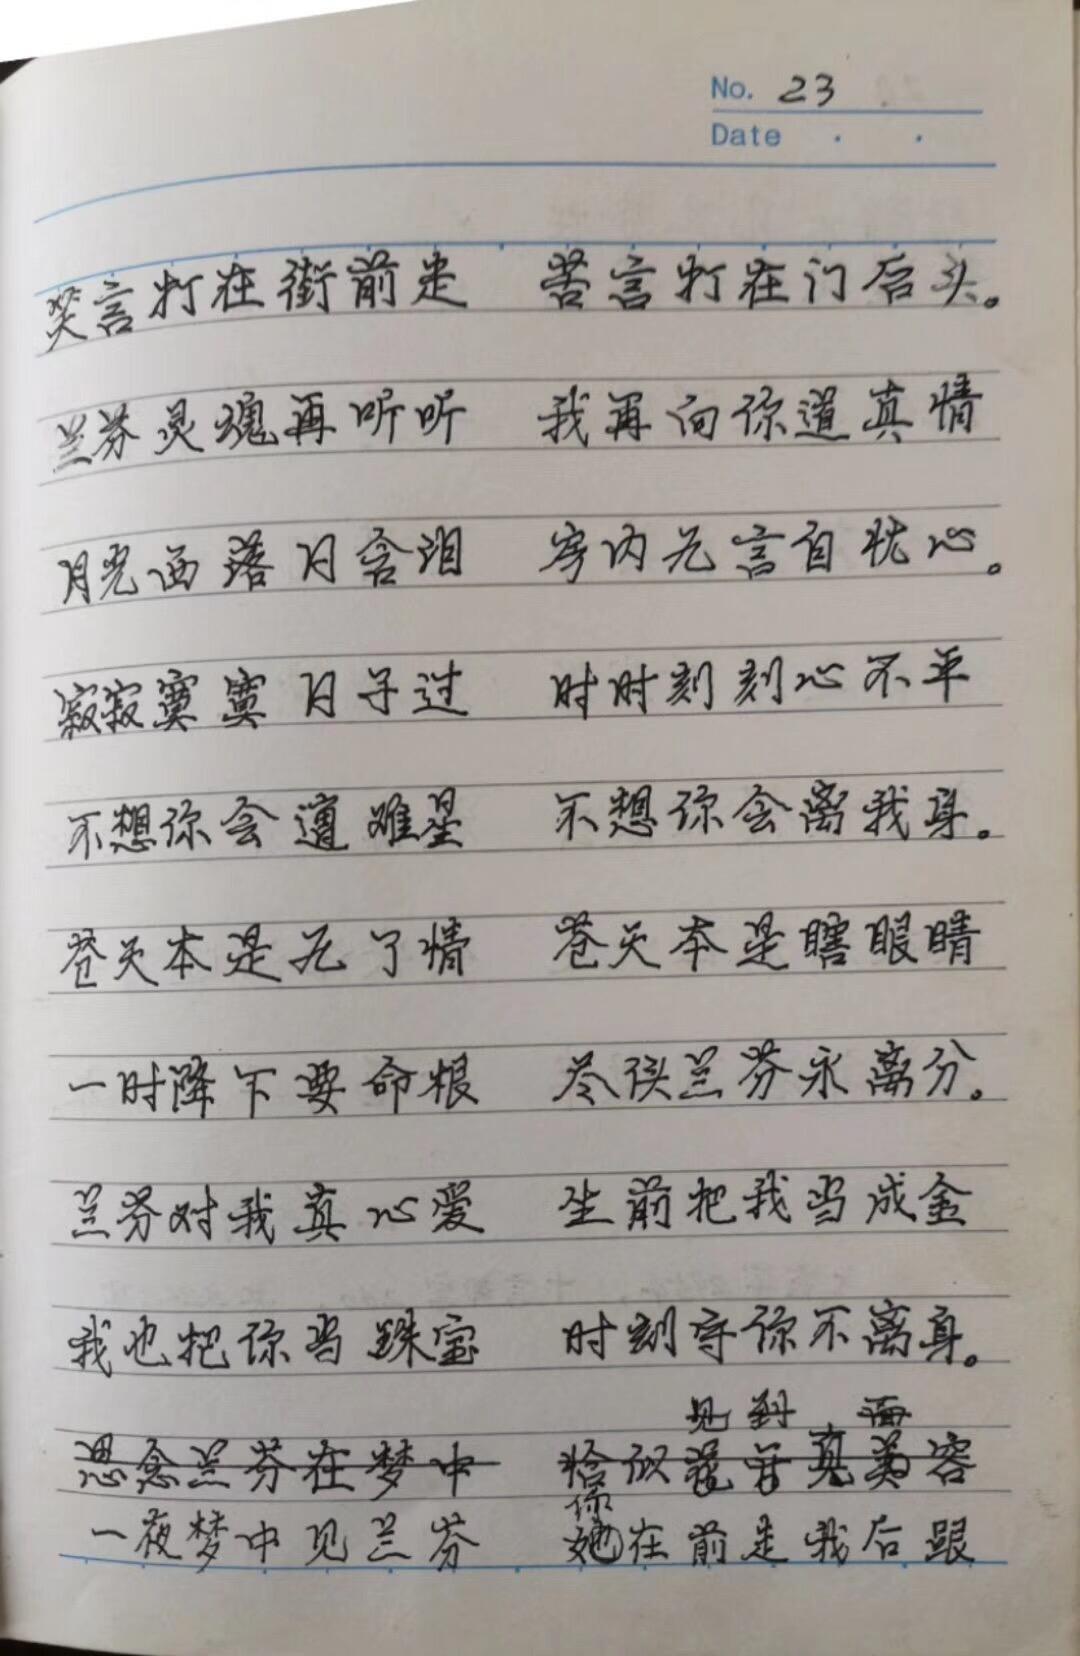 No. 23
Date
笑言打在街前走 苦言打在门后头。
兰芬灵魂再听听 我再向你道真情
月光西落月含泪 房内无言自忧心。
寂寂寞寞日子过 时时刻刻心不平
不想你会遭难星 不想你会离我身。
苍天本是无了情 苍天本是瞎眼睛
一时降下要命根 尽使兰芬永离分。
兰芬对我真心爱 生前把我当成金
我也把你当珠宝 时刻守你不离身。
见到 面
思念兰芬在梦中 恰似 真美容
你
一夜梦中见兰芬 她在前走我后跟